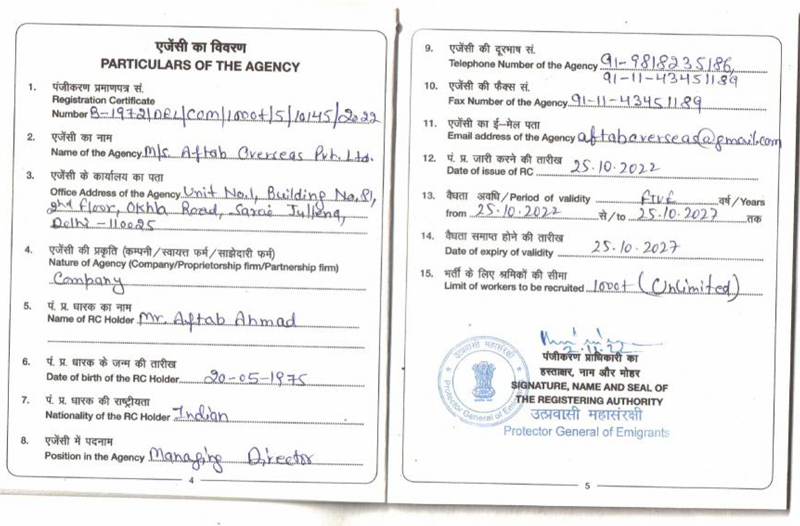 एजेंसी का विवरण
PARTICULARS OF THE AGENCY
1. पंजीकरण प्रमाणपत्र सं.
Registration Certificate
Number B-1972/DEL/COM/1000+/5/10145/2022
2. एजेंसी का नाम
Name of the Agency M/s. Aftab Overseas Pvt. Ltd.
3. एजेंसी के कार्यालय का पता
Office Address of the Agency Unit No.1, Building No.81,
2nd Floor, Okhla Road, Sarai Jullena,
Delhi-110025
4. एजेंसी की प्रकृति (कम्पनी/स्वायत्त फर्म/साझेदारी फर्म)
Nature of Agency (Company/Proprietorship firm/Partnership firm)
Company
5. पं. प्र. धारक का नाम
Name of RC Holder Mr. Aftab Ahmad
6. पं. प्र. धारक के जन्म की तारीख
Date of birth of the RC Holder 20-05-1975
7. पं. प्र. धारक की राष्ट्रीयता
Nationality of the RC Holder Indian
8. एजेंसी में पदनाम
Position in the Agency Managing Director
4
9. एजेंसी की दूरभाष सं.
Telephone Number of the Agency 91-9818235186,
91-11-43451189
10. एजेंसी की फैक्स सं.
Fax Number of the Agency 91-11-43451189
11. एजेंसी का ई-मेल पता
Email address of the Agency aftaboverseas@gmail.com
12. पं. प्र. जारी करने की तारीख
Date of issue of RC 25.10.2022
13. वैधता अवधि/Period of validity FIVE वर्ष/Years
from 25.10.2022 से/to 25.10.2027 तक
14. वैधता समाप्त होने की तारीख
Date of expiry of validity 25.10.2027
15. भर्ती के लिए श्रमिकों की सीमा
Limit of workers to be recruited 1000+ (Unlimited)
2.11.22
पंजीकरण प्राधिकारी का
हस्ताक्षर, नाम और मोहर
SIGNATURE, NAME AND SEAL OF
THE REGISTERING AUTHORITY
उत्प्रवासी महासंरक्षी
Protector General of Emigrants
उत्प्रवासी महासंरक्षी
Protector General of Emigrants
5